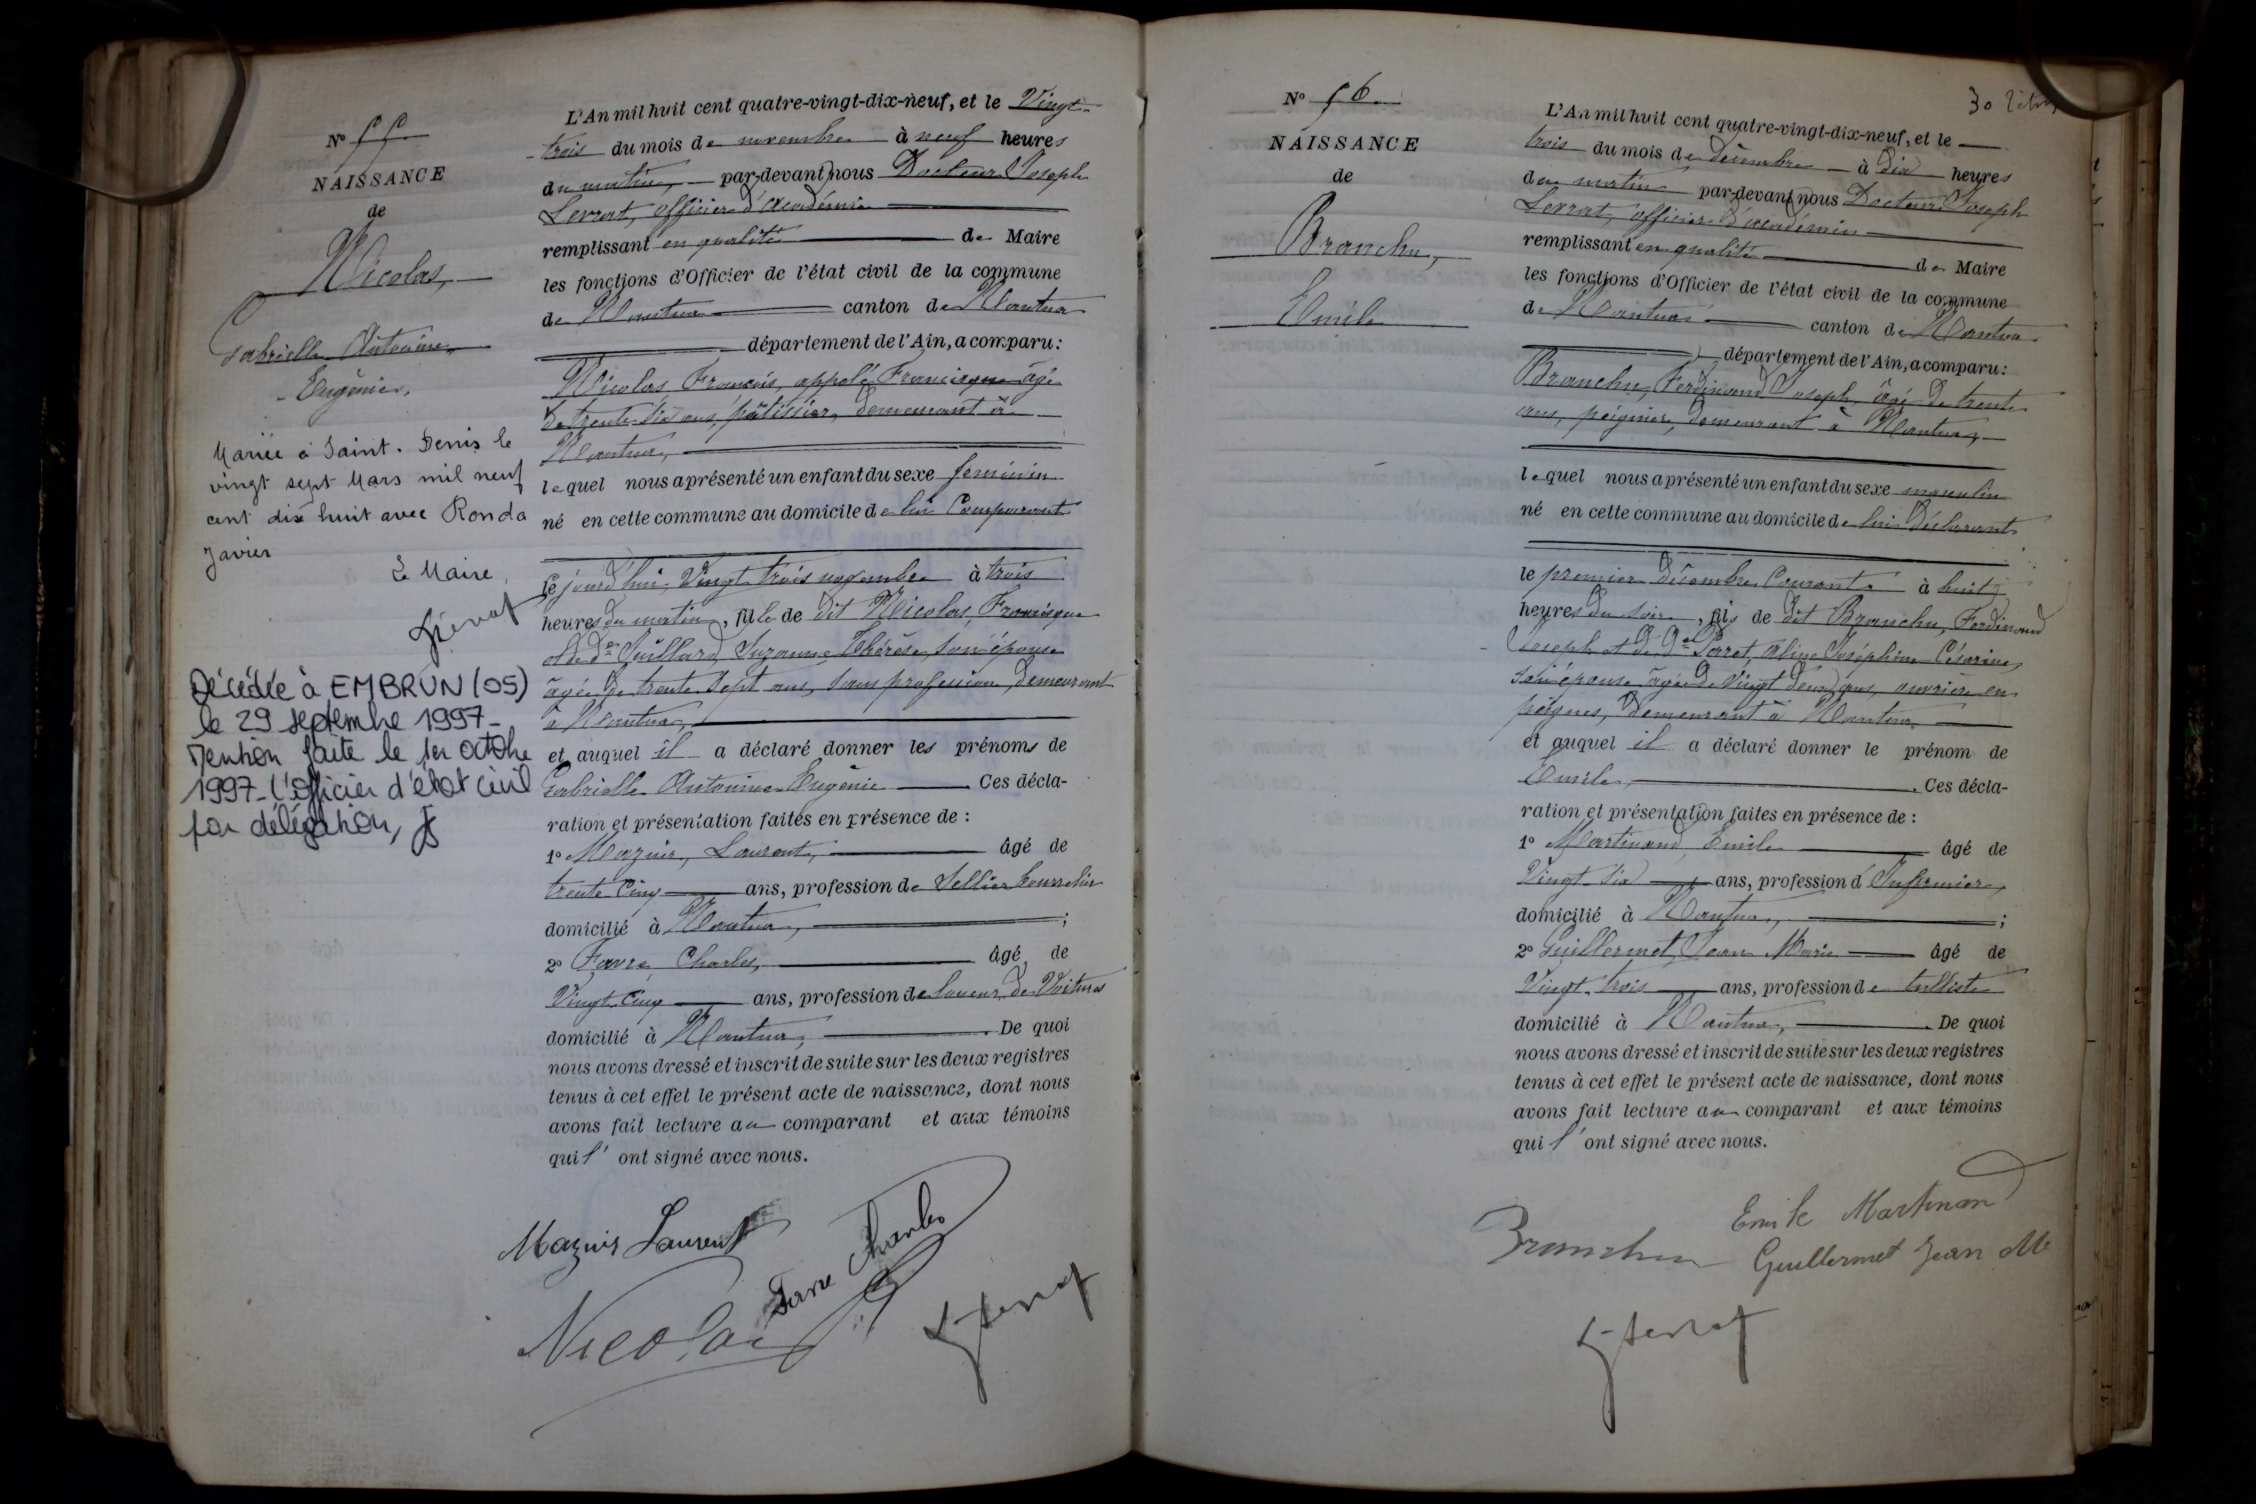 N° 55
NAISSANCE
de
Nicolas,
Gabrielle Antonine
Eugénie.
Mariée à Saint. Denis le
vingt sept Mars mil neuf
cent dix huit avec Ronda
Javier
Le Maire,
Décédée à EMBRUN (05)
le 29 septembre 1997_
Mention faite le 1er octobre
1997_L'officier d'état civil
par délégation,
L'An mil huit cent quatre-vingt-dix-neuf, et le Vingt-
trois du mois de novembre à neuf heures
du matin, par-devant nous Docteur Joseph
officier d'académie
remplissant en qualité de Maire
les fonctions d'Officier de l'état civil de la commune
de Nantua canton de Nantua
département de l'Ain, a comparu:
Nicolas, François, appelé Francisque âgé
de trente six ans, pâtissier, demeurant à
Nantua,
lequel nous a présenté un enfant du sexe feminin
né en cette commune au domicile de lui Comparant
ce jourd'hui Vingt trois novembre à trois
heures du matin, fille de dit Nicolas, Francisque
et de De Juillard, Suzanne Thérèse, son épouse
âgée de trente sept ans, sans profession, demeurant
à Nantua,
et auquel il a déclaré donner les prénoms de
Gabrielle Antonine Eugénie Ces décla-
ration et présentation faites en présence de :
1° Mazuir, Laurent, âgé de
trente cinq ans, profession de Sellier bourrelier
domicilié à Nantua, ;
2° Favre, Charles, âgé de
Vingt cinq ans, profession de loueur de Voitures
domicilié à Nantua, . De quoi
nous avons dressé et inscrit de suite sur les deux registres
tenus à cet effet le présent acte de naissance, dont nous
avons fait lecture au comparant et aux témoins
qui l' ont signé avec nous.
Mazuir Laurent
Favre Charles
Nicolas
N° 56
NAISSANCE
de
Branchu,
Emile
L'An mil huit cent quatre-vingt-dix-neuf, et le
trois du mois de décembre à dix heures
du matin par-devant nous Docteur Joseph
officier d'académie
remplissant en qualité de Maire
les fonctions d'Officier de l'état civil de la commune
de Nantua canton de Nantua
département de l'Ain, a comparu:
Branchu, Ferdinand Joseph, âgé de trente
ans, peignier, demeurant à Nantua,
lequel nous a présenté un enfant du sexe masculin
né en cette commune au domicile de lui Déclarant
le premier décembre Courant à huit
heures du soir, fils de dit Branchu, Ferdinand
Joseph et de De Perret, Aline Joséphine Césarine,
son épouse, âgée de vingt deux ans, ouvrière en
peignes, demeurant à Nantua
et auquel il a déclaré donner le prénom de
Emile, . Ces décla-
ration et présentation faites en présence de :
1° Martinand, Emile âgé de
Vingt six ans, profession d'Infirmier,
domicilié à Nantua, ;
2° Guillermet, Jean Marie âgé de
Vingt trois ans, profession de tulliste
domicilié à Nantua, . De quoi
nous avons dressé et inscrit de suite sur les deux registres
tenus à cet effet le présent acte de naissance, dont nous
avons fait lecture au comparant et aux témoins
qui l' ont signé avec nous.
Emile Martinand
Branchu Guillermet Jean M